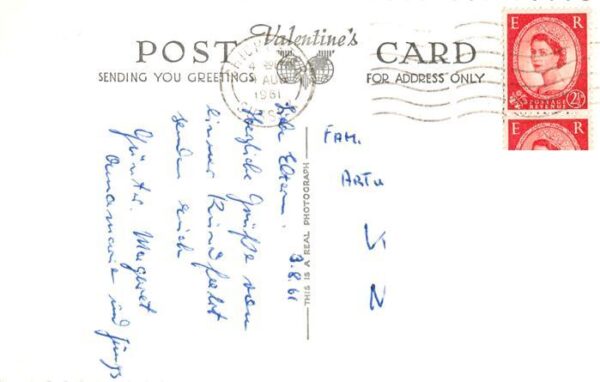 Valentine's
POST CARD
SENDING YOU GREETINGS
FOR ADDRESS ONLY
AUG
1961
E R
POSTAGE
REVENUE
2½
E R
THIS IS A REAL PHOTOGRAPH
3.8.61
Liebe Eltern!
Herzliche Grüße von
einer Rundfahrt
senden euch
Günter, Margret
Annemarie und Jungs
FAM.
ARTU
K
N